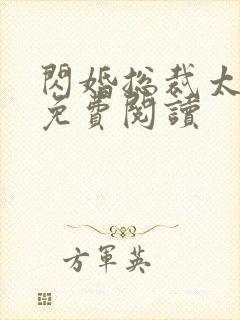 閃婚總裁太
免費閱讀
方軍英